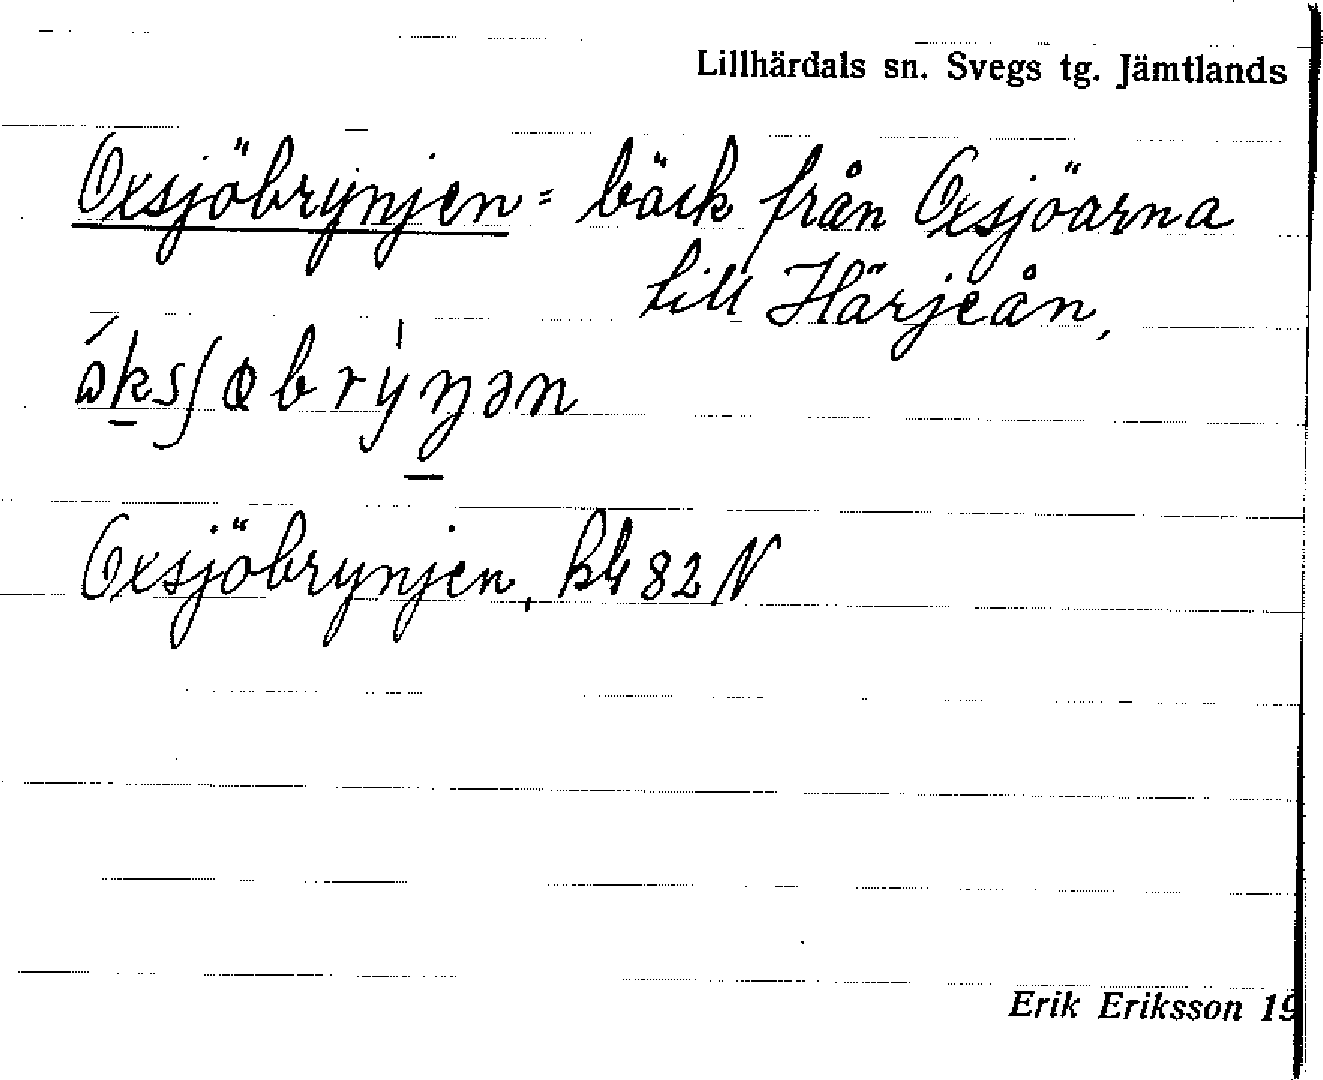 Lillhärdals sn. Svegs tg. Jämtlands
Oxsjöbrynjen = bäck från Oxsjöarna
till Härjeån,
Oxsjöbrynjen, bl 82 N
Erik Eriksson 19